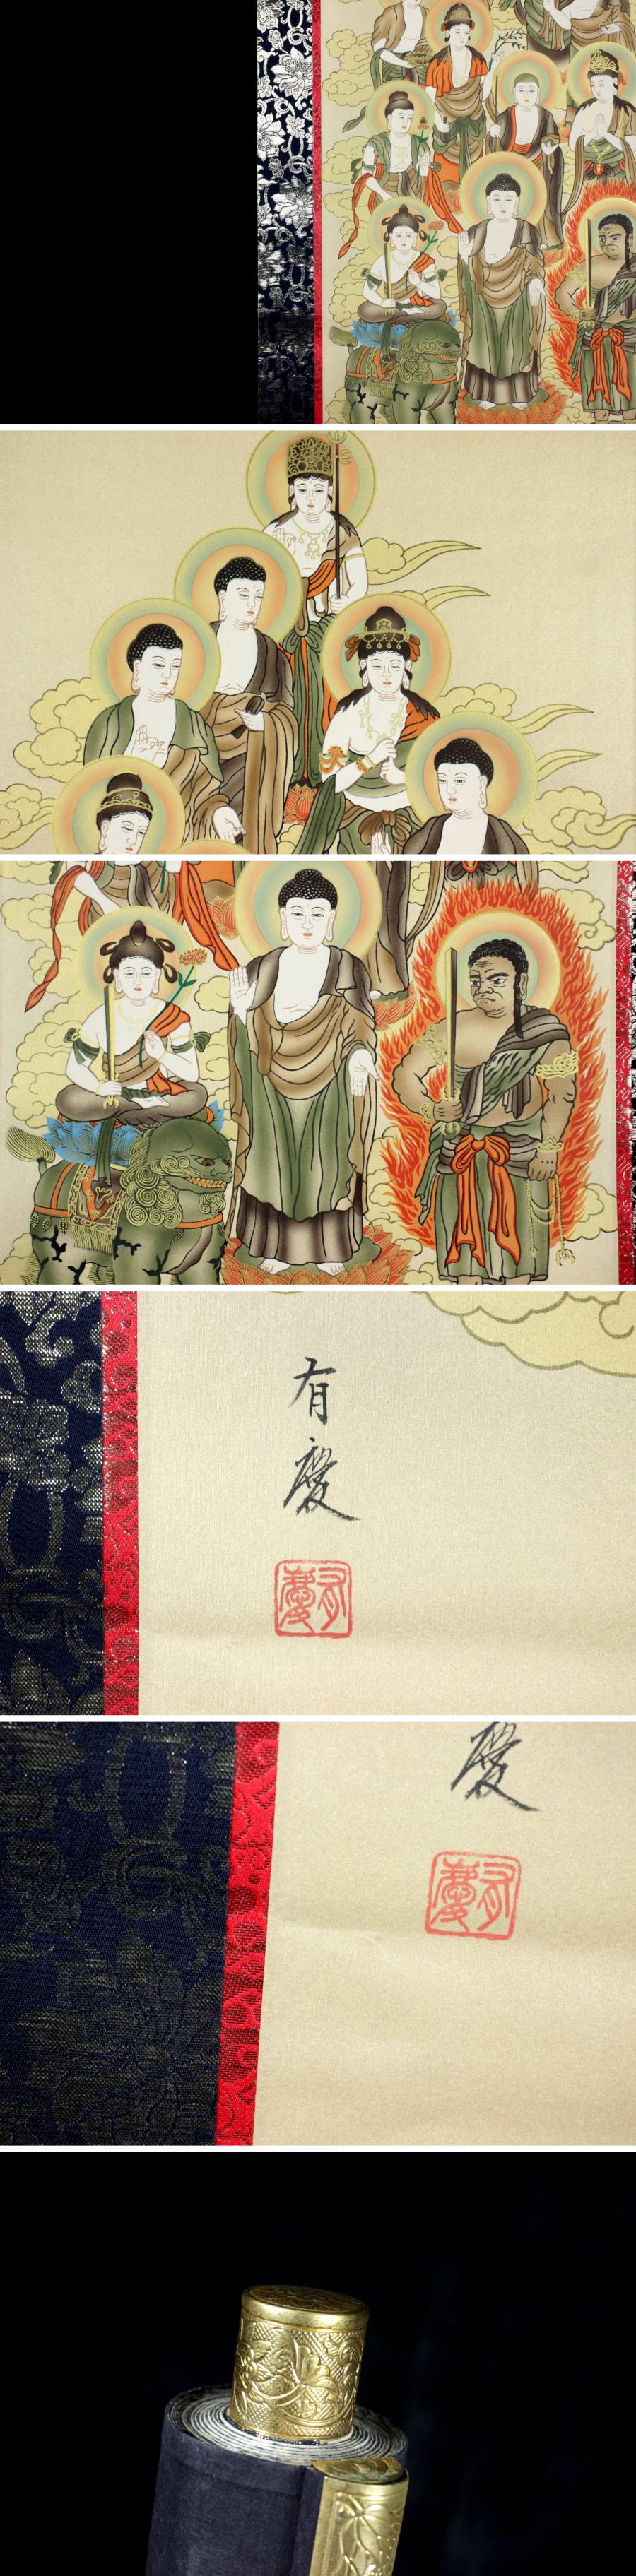 有
慶
有慶
慶
有慶